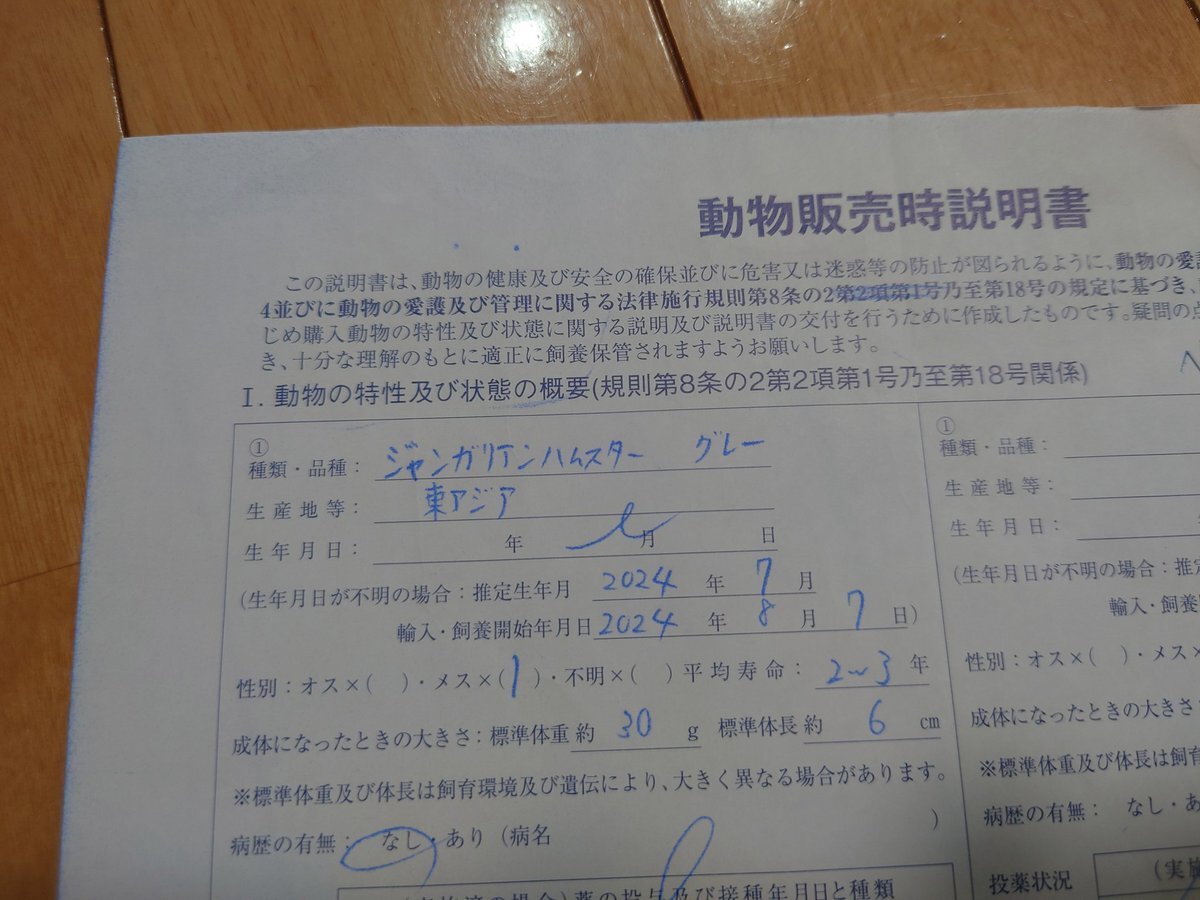 動物販売時説明書
この説明書は、動物の健康及び安全の確保並びに危害又は迷惑等の防止が図られるように、動物の愛
4並びに動物の愛護及び管理に関する法律施行規則第8条の2第2項第1号乃至第18号の規定に基づき、
じめ購入動物の特性及び状態に関する説明及び説明書の交付を行うために作成したものです。疑問の点
き、十分な理解のもとに適正に飼養保管されますようお願いします。
I. 動物の特性及び状態の概要(規則第8条の2第2項第1号乃至第18号関係)
①
種類・品種: ジャンガリアンハムスター グレー
生産地等: 東アジア
生年月日: 年 月 日
(生年月日が不明の場合:推定生年月 2024 年 7 月
輸入・飼養開始年月日 2024 年 8 月 7 日)
性別:オス×( )・メス×(1)・不明×( ) 平均寿命: 2~3 年
成体になったときの大きさ:標準体重 約 30 g 標準体長 約 6 cm
※標準体重及び体長は飼育環境及び遺伝により、大きく異なる場合があります。
病歴の有無: なし・あり (病名 )
薬の投与及び接種年月日と種類
①
種類・品種:
生産地等:
生年月日:
(生年月日が不明の場合:推定
輸入・飼養開
性別:オス×( )・メス×
成体になったときの大きさ
※標準体重及び体長は飼育
病歴の有無: なし・あ
投薬状況 (実施